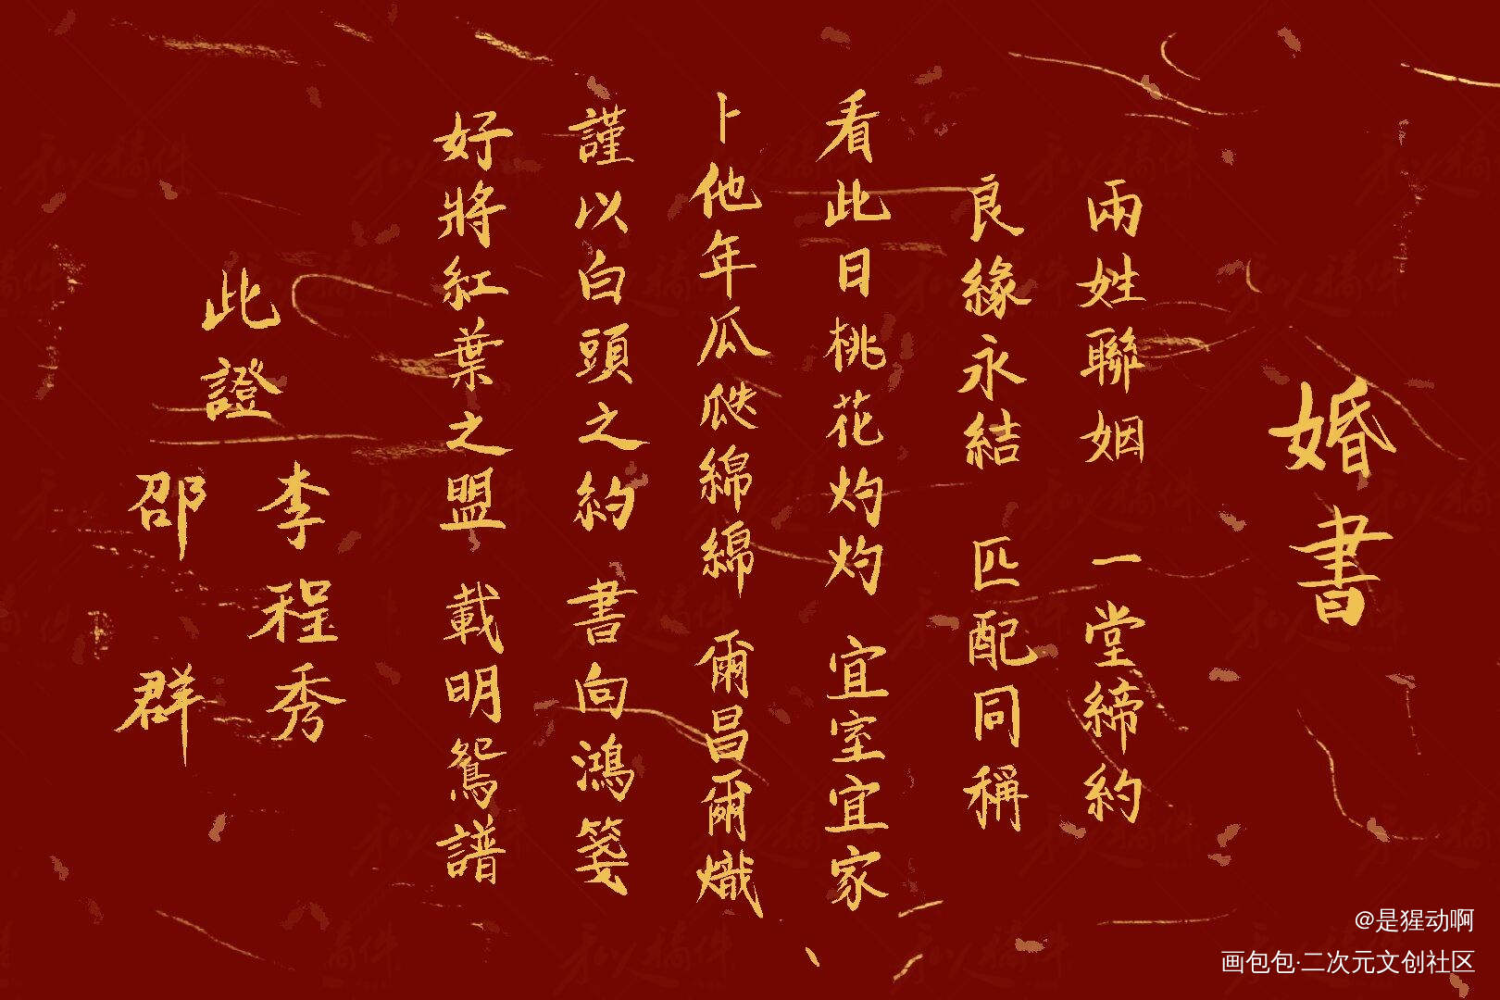 婚書
兩姓聯姻 一堂締約
良緣永結 匹配同稱
看此日桃花灼灼 宜室宜家
卜他年瓜瓞綿綿 爾昌爾熾
謹以白頭之約 書向鴻箋
好將紅葉之盟 載明鴛譜
此證
李程秀
邵群
@是猩动啊
画包包·二次元文创社区